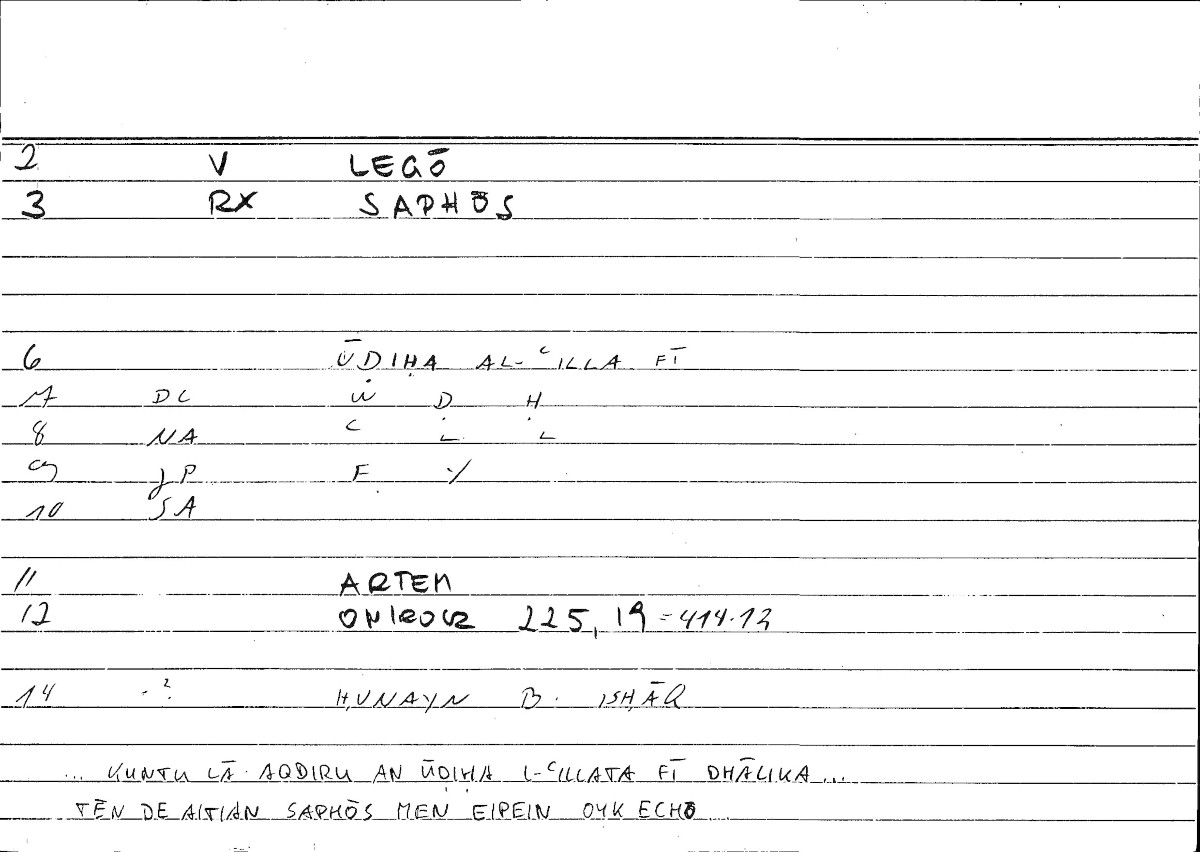 2 V LEGŌ
3 RX SAPHŌS
6 ŪDIḤA AL-ʿILLA FĪ
7 DC W Ḍ Ḥ
8 NA ʿ L L
9 JP F Y
10 SA
11 ARTEM
12 ONIROCR 225, 19 = 414.12
14 -? ḤUNAYN B. ISḤĀQ
... KUNTU LĀ AQDIRU AN ŪḌIḤA L-ʿILLATA FĪ DHĀLIKA ...
TĒN DE AITIAN SAPHŌS MEN EIPEIN OYK ECHŌ ...